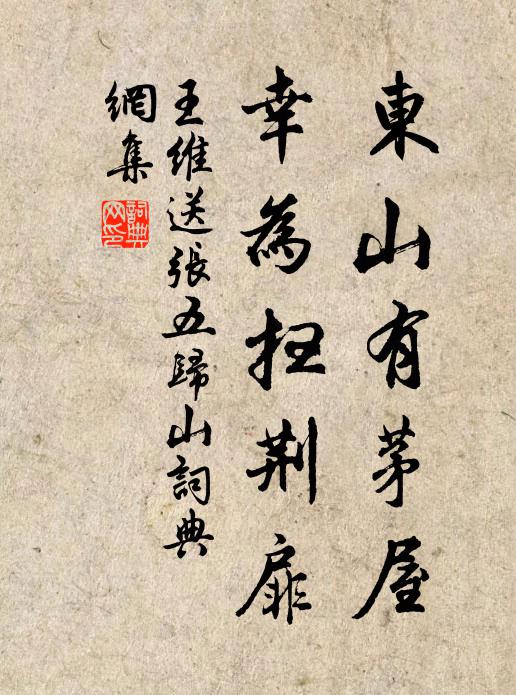 東山有茅屋
幸為掃荆扉
王維送張五歸山詞典
網集
詞典網印